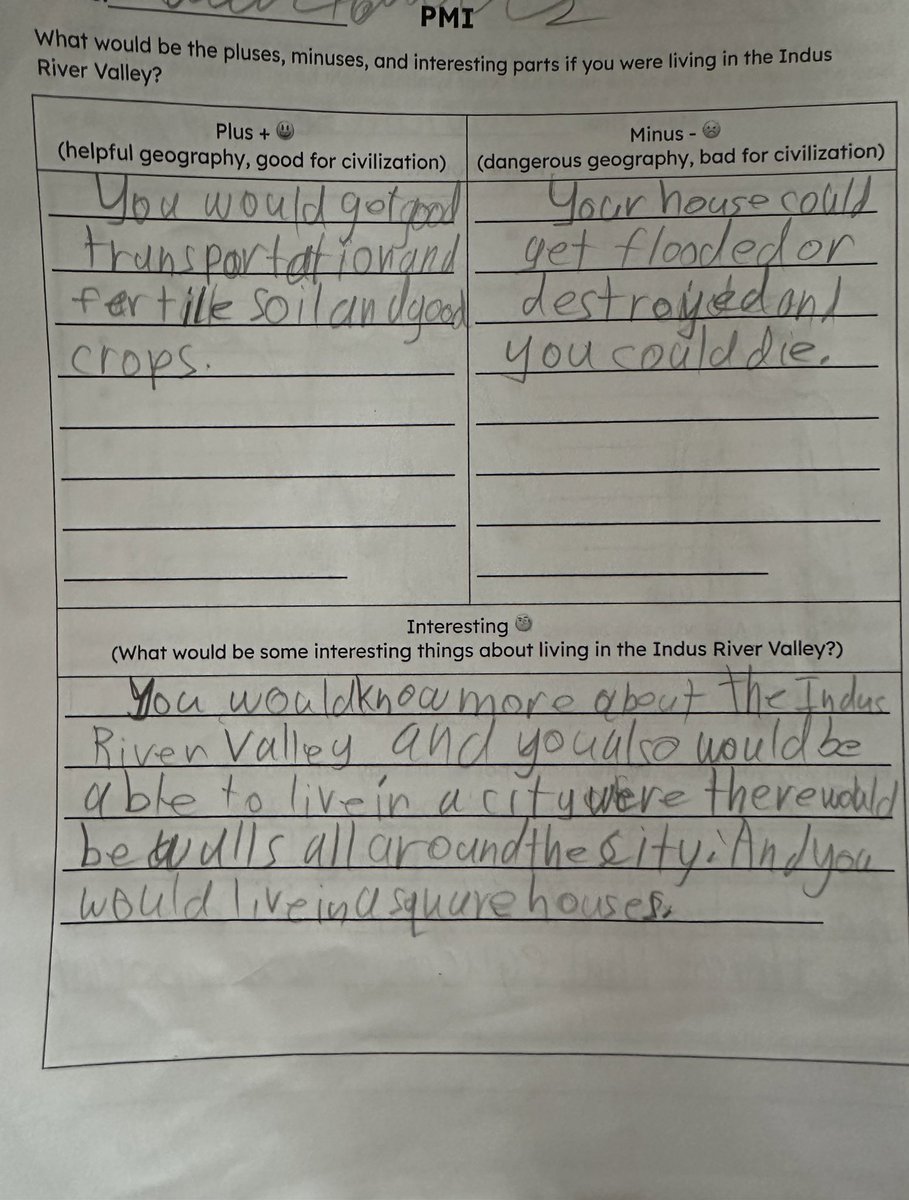 PMI
What would be the pluses, minuses, and interesting parts if you were living in the Indus
River Valley?
Plus + 😃
(helpful geography, good for civilization)
You would got good
transportation and
fertile soil and good
crops.
Minus - ☹
(dangerous geography, bad for civilization)
Your house could
get flooded or
destroyed and
you could die.
Interesting 🤔
(What would be some interesting things about living in the Indus River Valley?)
You would know more about the Indus
River Valley and you also would be
able to live in a city were there would
be walls all around the city. And you
would live in a square houses.